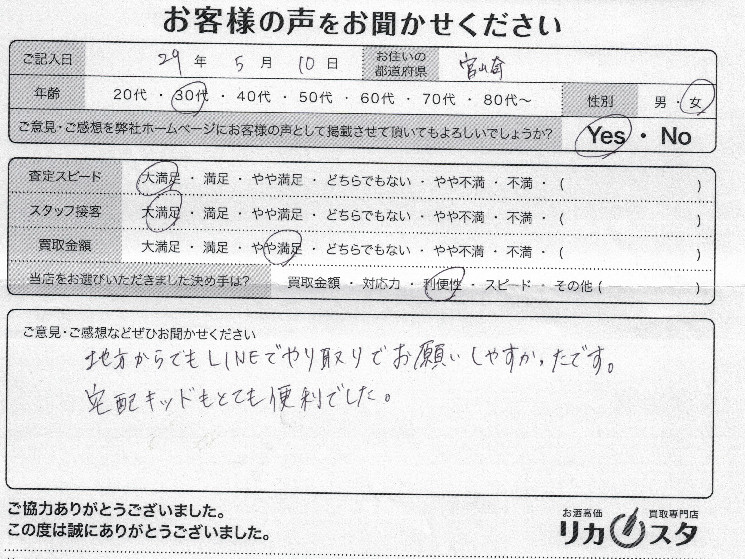 お客様の声をお聞かせください
ご記入日 29 年 5 月 10 日 お住いの都道府県 宮崎
年齢 20代・30代・40代・50代・60代・70代・80代～ 性別 男・女
ご意見・ご感想を弊社ホームページにお客様の声として掲載させて頂いてもよろしいでしょうか? Yes・No
査定スピード 大満足・満足・やや満足・どちらでもない・やや不満・不満・( )
スタッフ接客 大満足・満足・やや満足・どちらでもない・やや不満・不満・( )
買取金額 大満足・満足・やや満足・どちらでもない・やや不満・不満・( )
当店をお選びいただきました決め手は? 買取金額・対応力・利便性・スピード・その他( )
ご意見・ご感想などぜひお聞かせください
地方からでもLINEでやり取りでお願いしやすかったです。
宅配キッドもとても便利でした。
ご協力ありがとうございました。
この度は誠にありがとうございました。
お酒高価 買取専門店
リカスタ